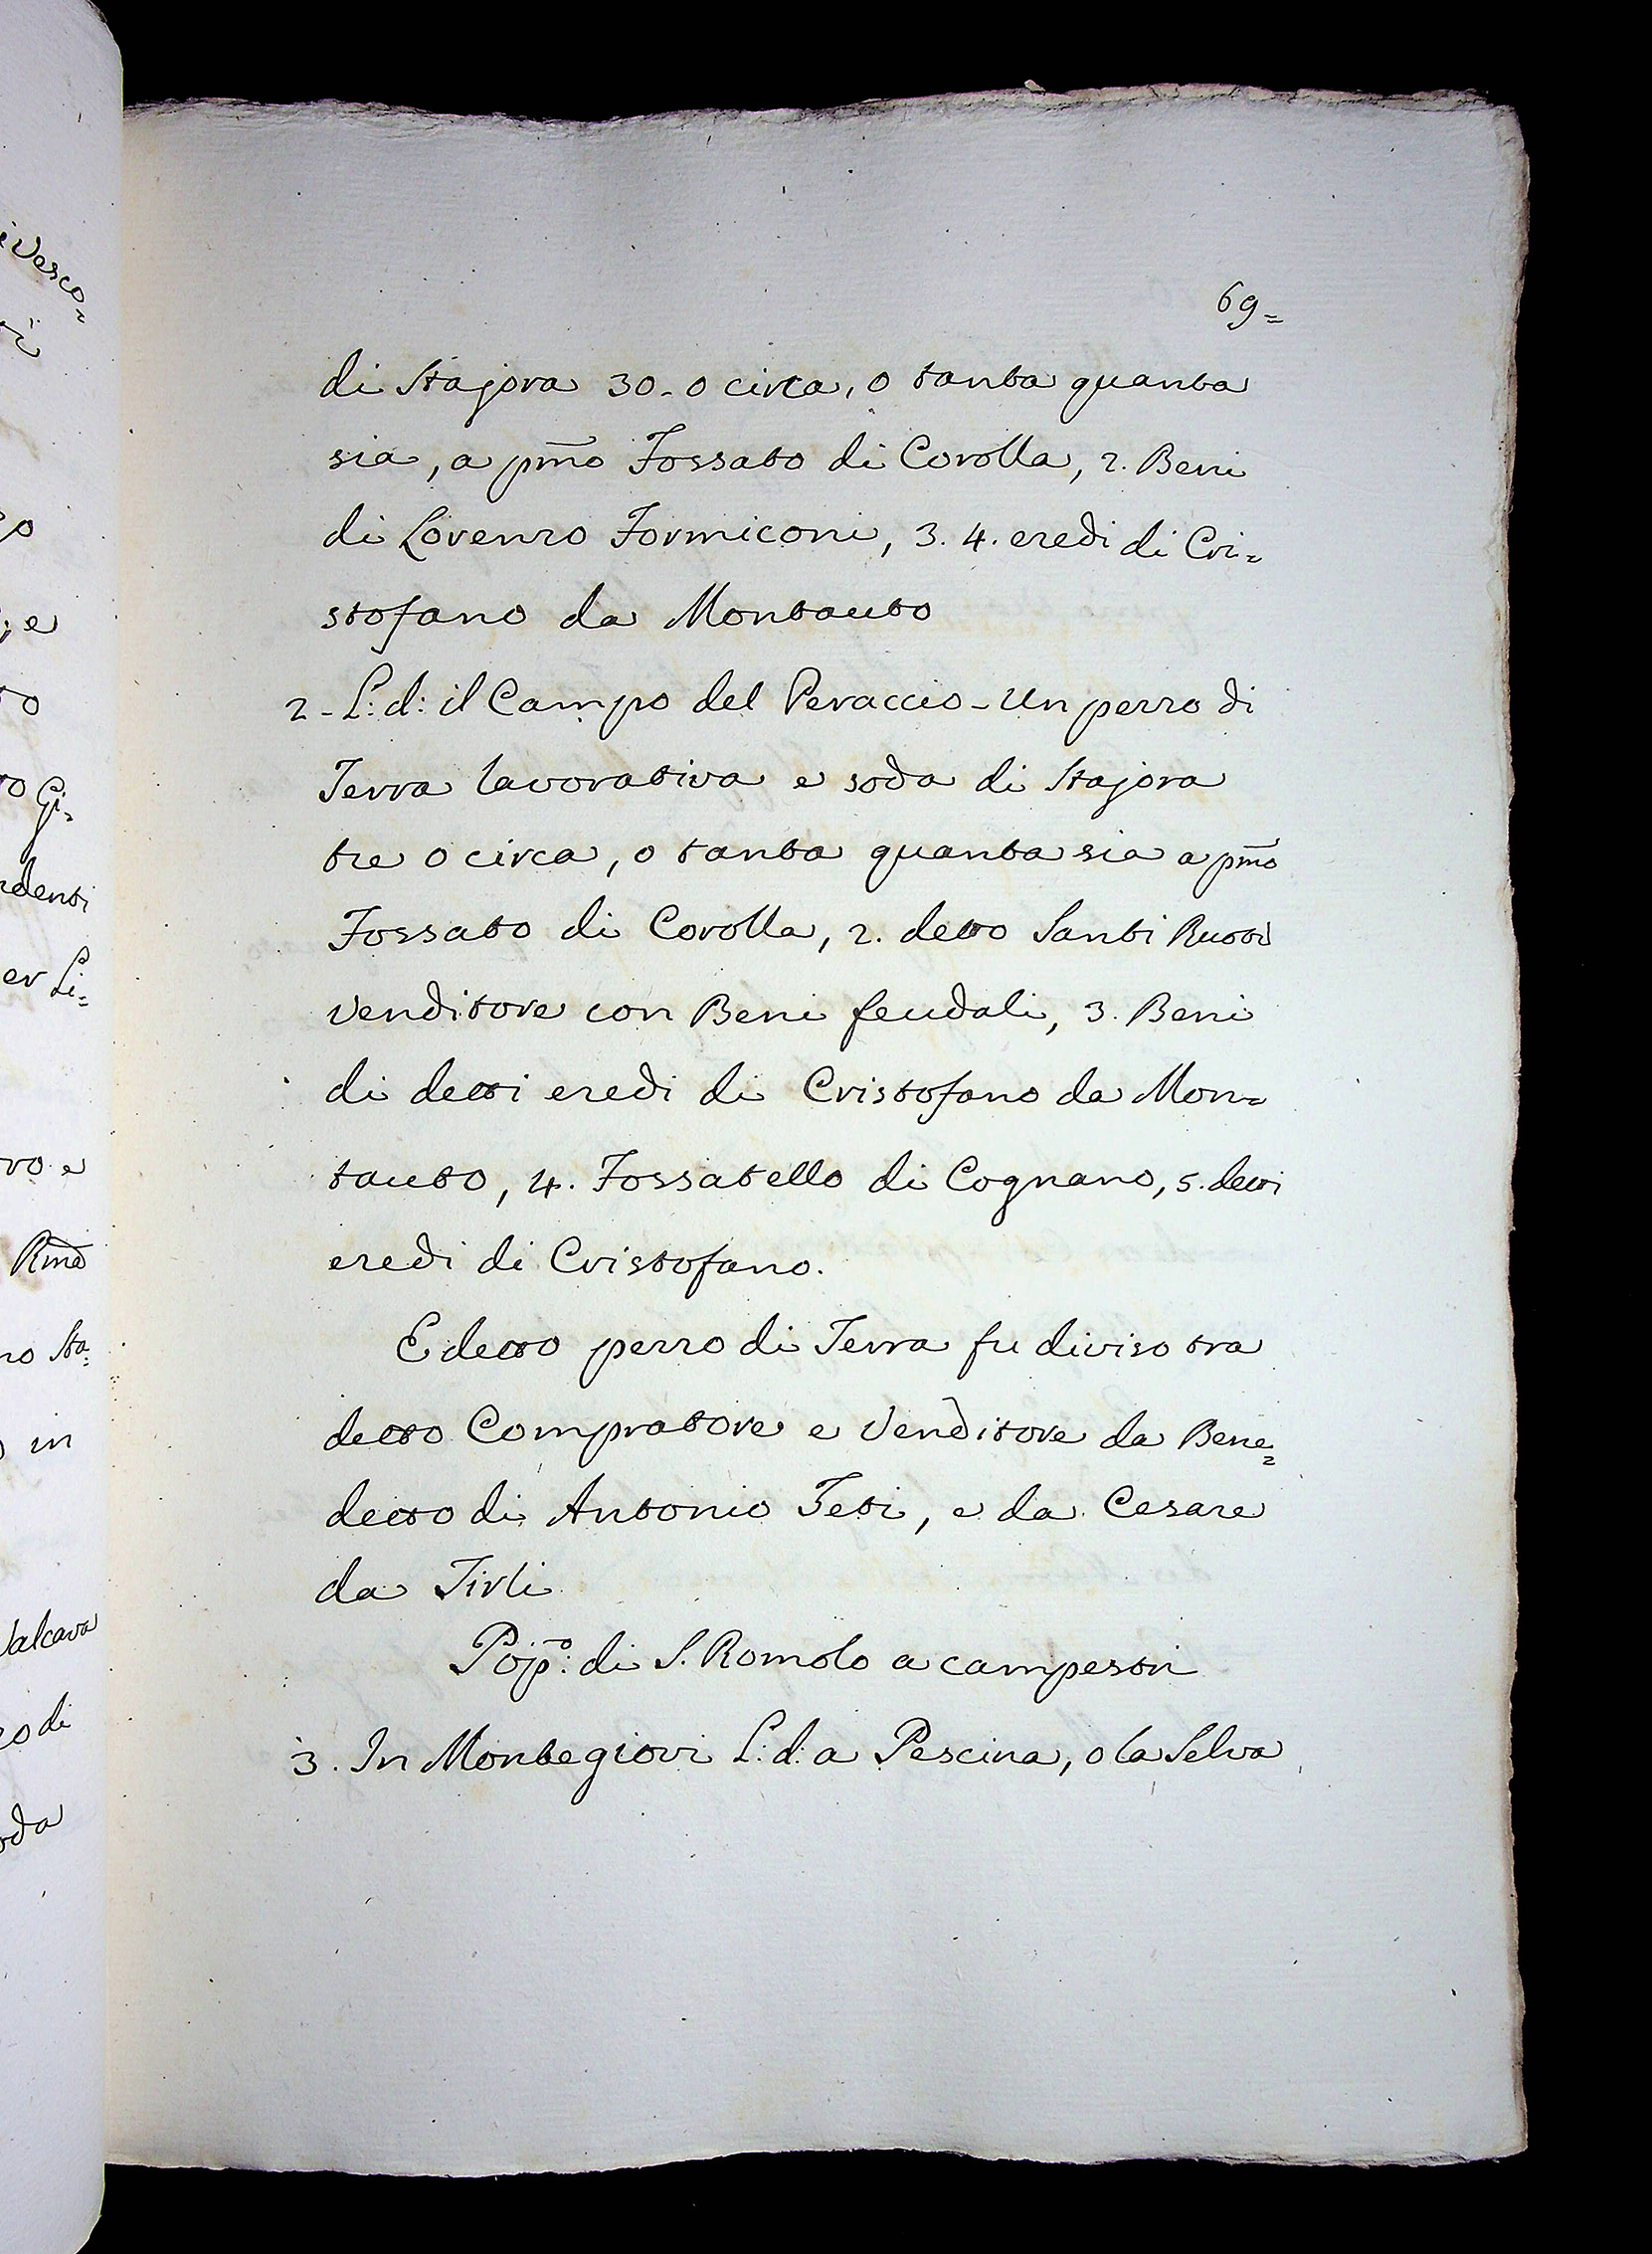 69=
di Stajora 30- o circa, o tanta quanta
sia, a pmo Fossato di Corolla, 2. Beni
di Lorenzo Formiconi, 3. 4. eredi di Cri=
stofano da Montauto
2- L: d: il Campo del Peraccio - Un pezzo di
Terra lavorativa e soda di Stajora
tre o circa, o tanta quanta sia a pmo
Fossato di Corolla, 2. detto Santi
venditore con Beni feudali, 3. Beni
di detti eredi di Cristofano da Mon=
tauto, 4. Fossatello di Cognano, 5. detti
eredi di Cristofano.
E detto pezzo di Terra fu diviso tra
detto Compratore e Venditore da Bene=
detto di Antonio Teti, e da Cesare
da Tirli
Popo: di S. Romolo a campestri
3. In Montegiovi L: d: a Pescina, o la Selva